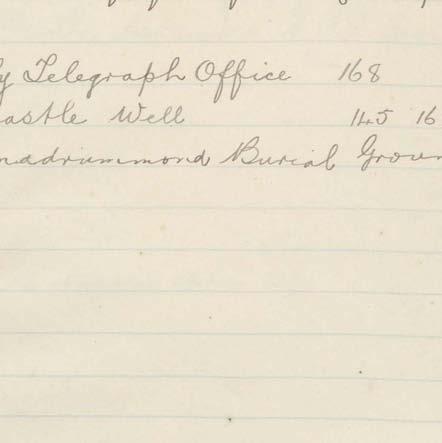 y Telegraph Office 168
astle Well 145 16
nadrummond Burial Groun